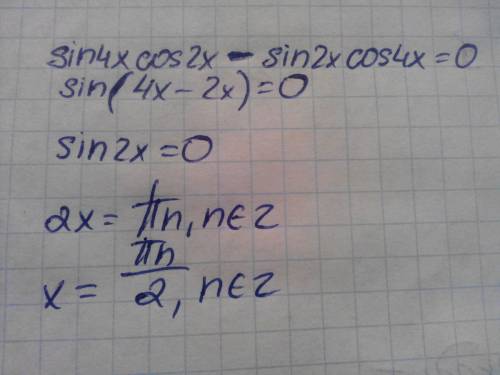 sin4x cos2x - sin2x cos4x = 0
sin(4x - 2x) = 0
sin2x = 0
2x = πn, n∈z
x = πn/2, n∈z